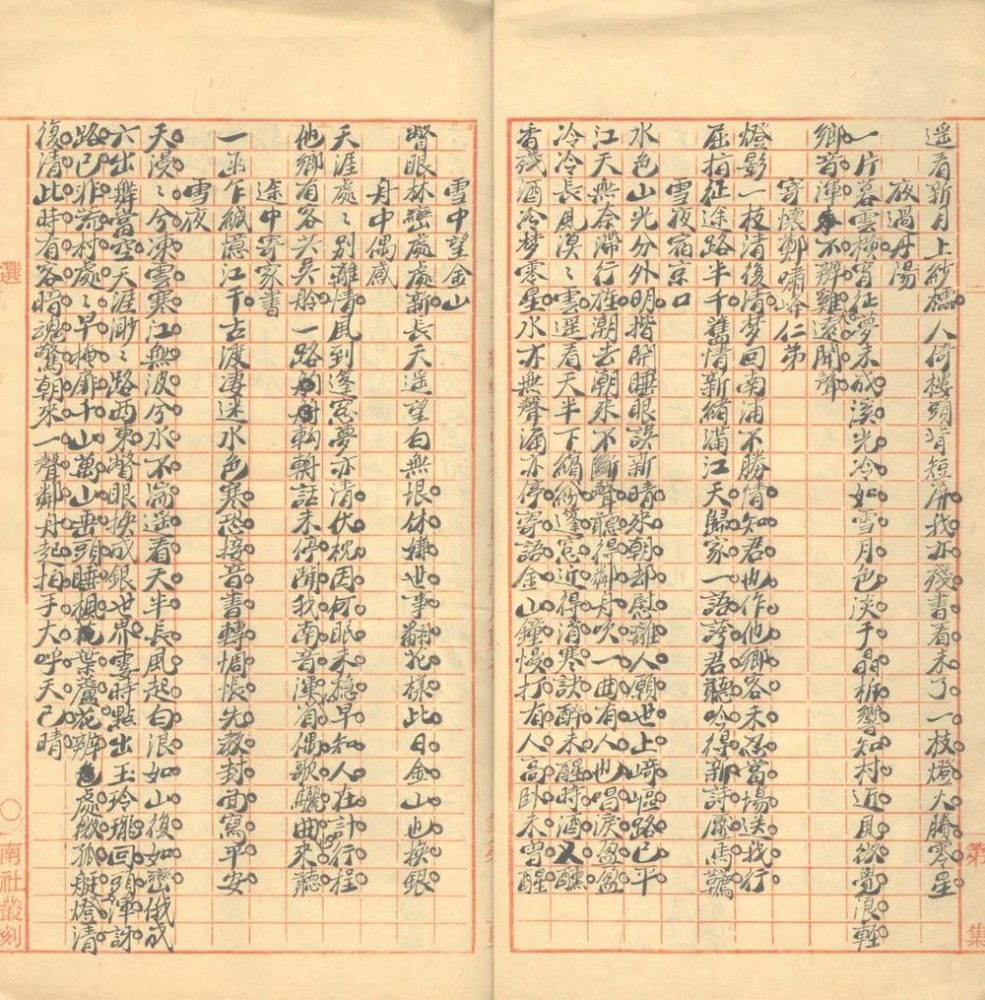 遥看新月上紗櫺人倚樓頭背短屏我亦殘書看未了一枝燈火勝寒星
夜過丹陽
一片暮雲橫宵征夢未成溪光冷如雪月色淡于晶柝響知村近風欲覺浪輕
鄉音渾不辨難遠聞聲
寄懷鄭嘯岑仁弟
燈影一枝清復清夢回南浦不勝情知君也作他鄉客未忍當場送我行
屈指征途路半千舊情新緒滿江天歸家一語誇君聽吟得新詩壓馬韉
雪夜宿京口
水色山光分外明揩開睡眼誤新晴來朝却慰離人願世上崎嶇路已平
江天無奈滯行旌潮去潮來不斷聲聽得鄰舟吹一曲有人也唱淚盈盈
冷冷長風漠〻雲遥看天半下繽紛篷窓近得消寒訣醉未醒時酒又醺
香殘酒冷梦零星水亦無聲漏亦停寄語金山鐘慢打有人高卧未曾醒
雪中望金山
瞥眼林巒處處新長天遥望白無垠休嫌世事翻花樣此日金山也换銀
舟中偶感
天涯處〻別離情風到蓬窓夢亦清伏枕因何眠未穩早知人在計行程
他鄉有客共吳舲一路轔話未停聞我南音渾省偶歌驪曲來聽
途中寄家書
一函乍緘憶江干古渡凄迷水色寒恐接音書轉惆悵先教封面寫平安
雪夜
天漫〻兮凍雲寒江無波兮水不湍遥看天半長風起白浪如山復如巒俄成
六出舞當空天涯渺〻路西東瞥眼换成銀世界霎時點出玉玲瓏回頭渾訝
路已非荒村處〻早掩扉千山萬山垂頭睡楓葉蘆花辨處微孤艇燈清
復清此時有客暗魂驚朝來一聲鄰舟起拍手大呼天已晴
第 集
選
〇
南社叢刻